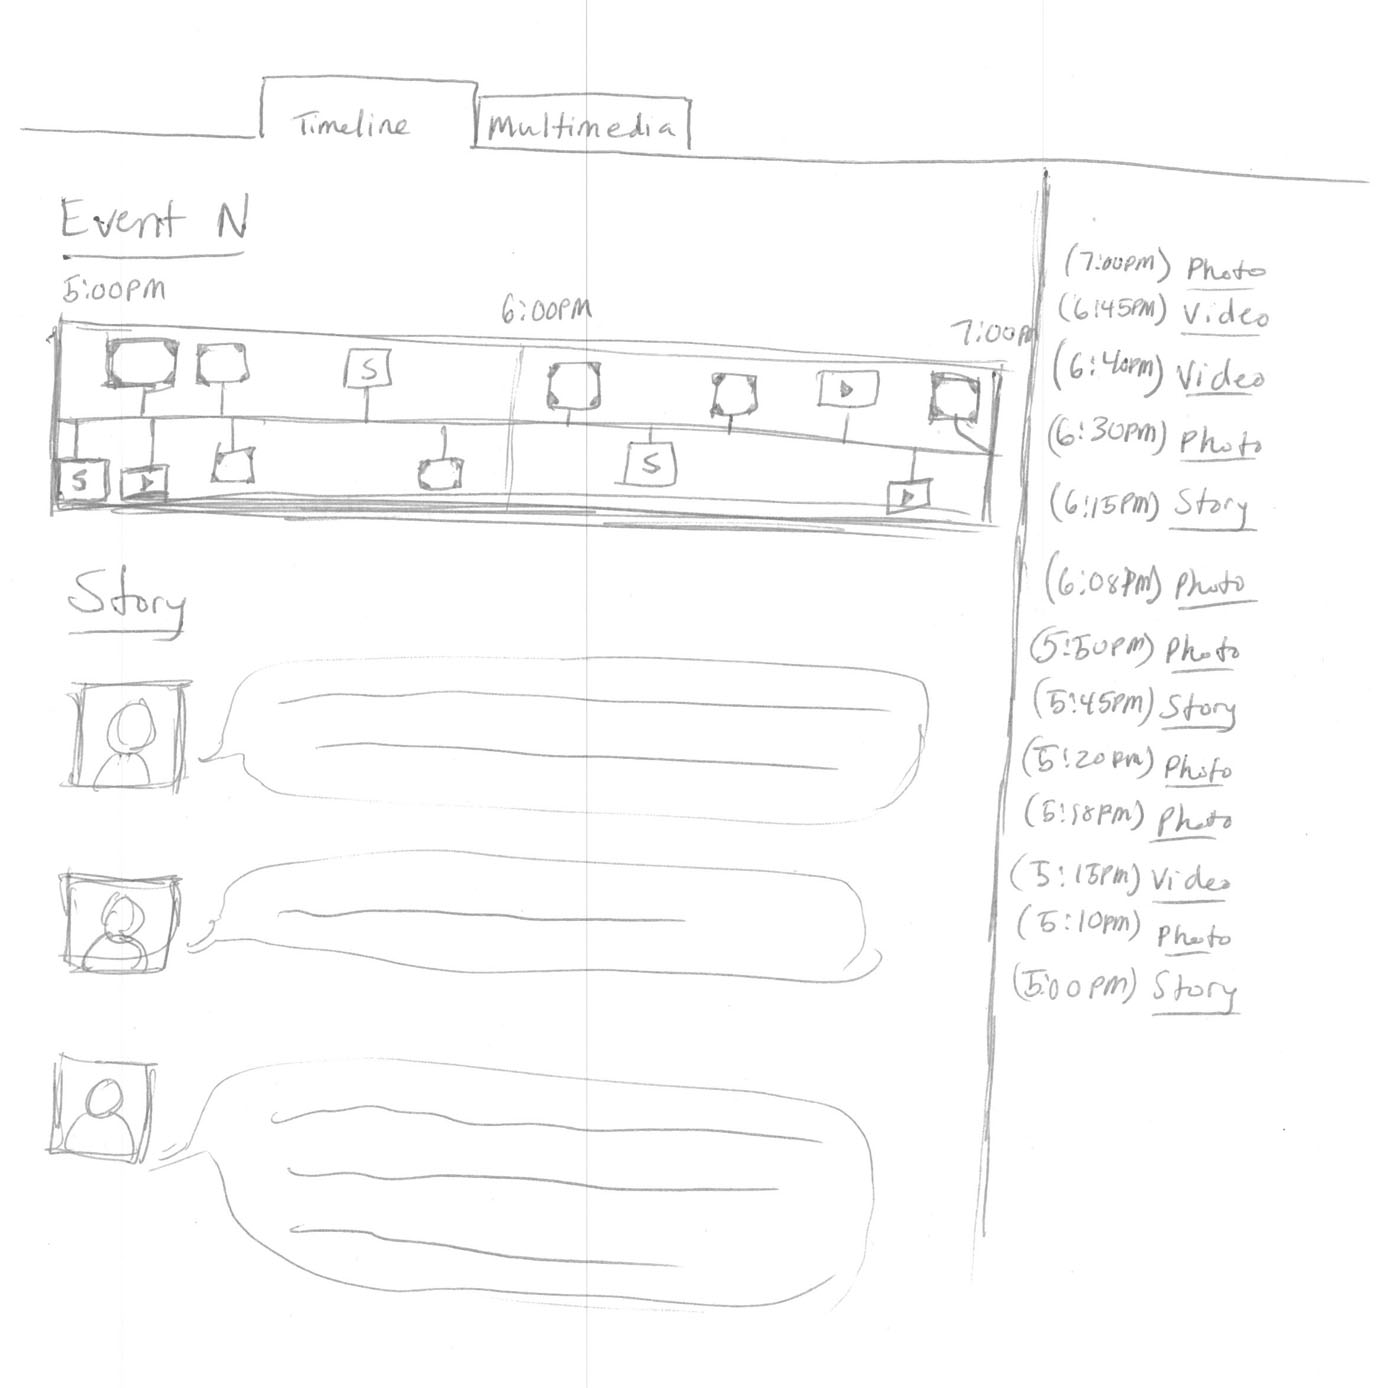 Timeline
Multimedia
Event N
5:00PM
6:00PM
7:00PM
S
S
S
Story
(7:00PM) Photo
(6:45PM) Video
(6:40PM) Video
(6:30PM) Photo
(6:15PM) Story
(6:08PM) Photo
(5:50PM) Photo
(5:45PM) Story
(5:20PM) Photo
(5:18PM) Photo
(5:15PM) Video
(5:10PM) Photo
(5:00PM) Story